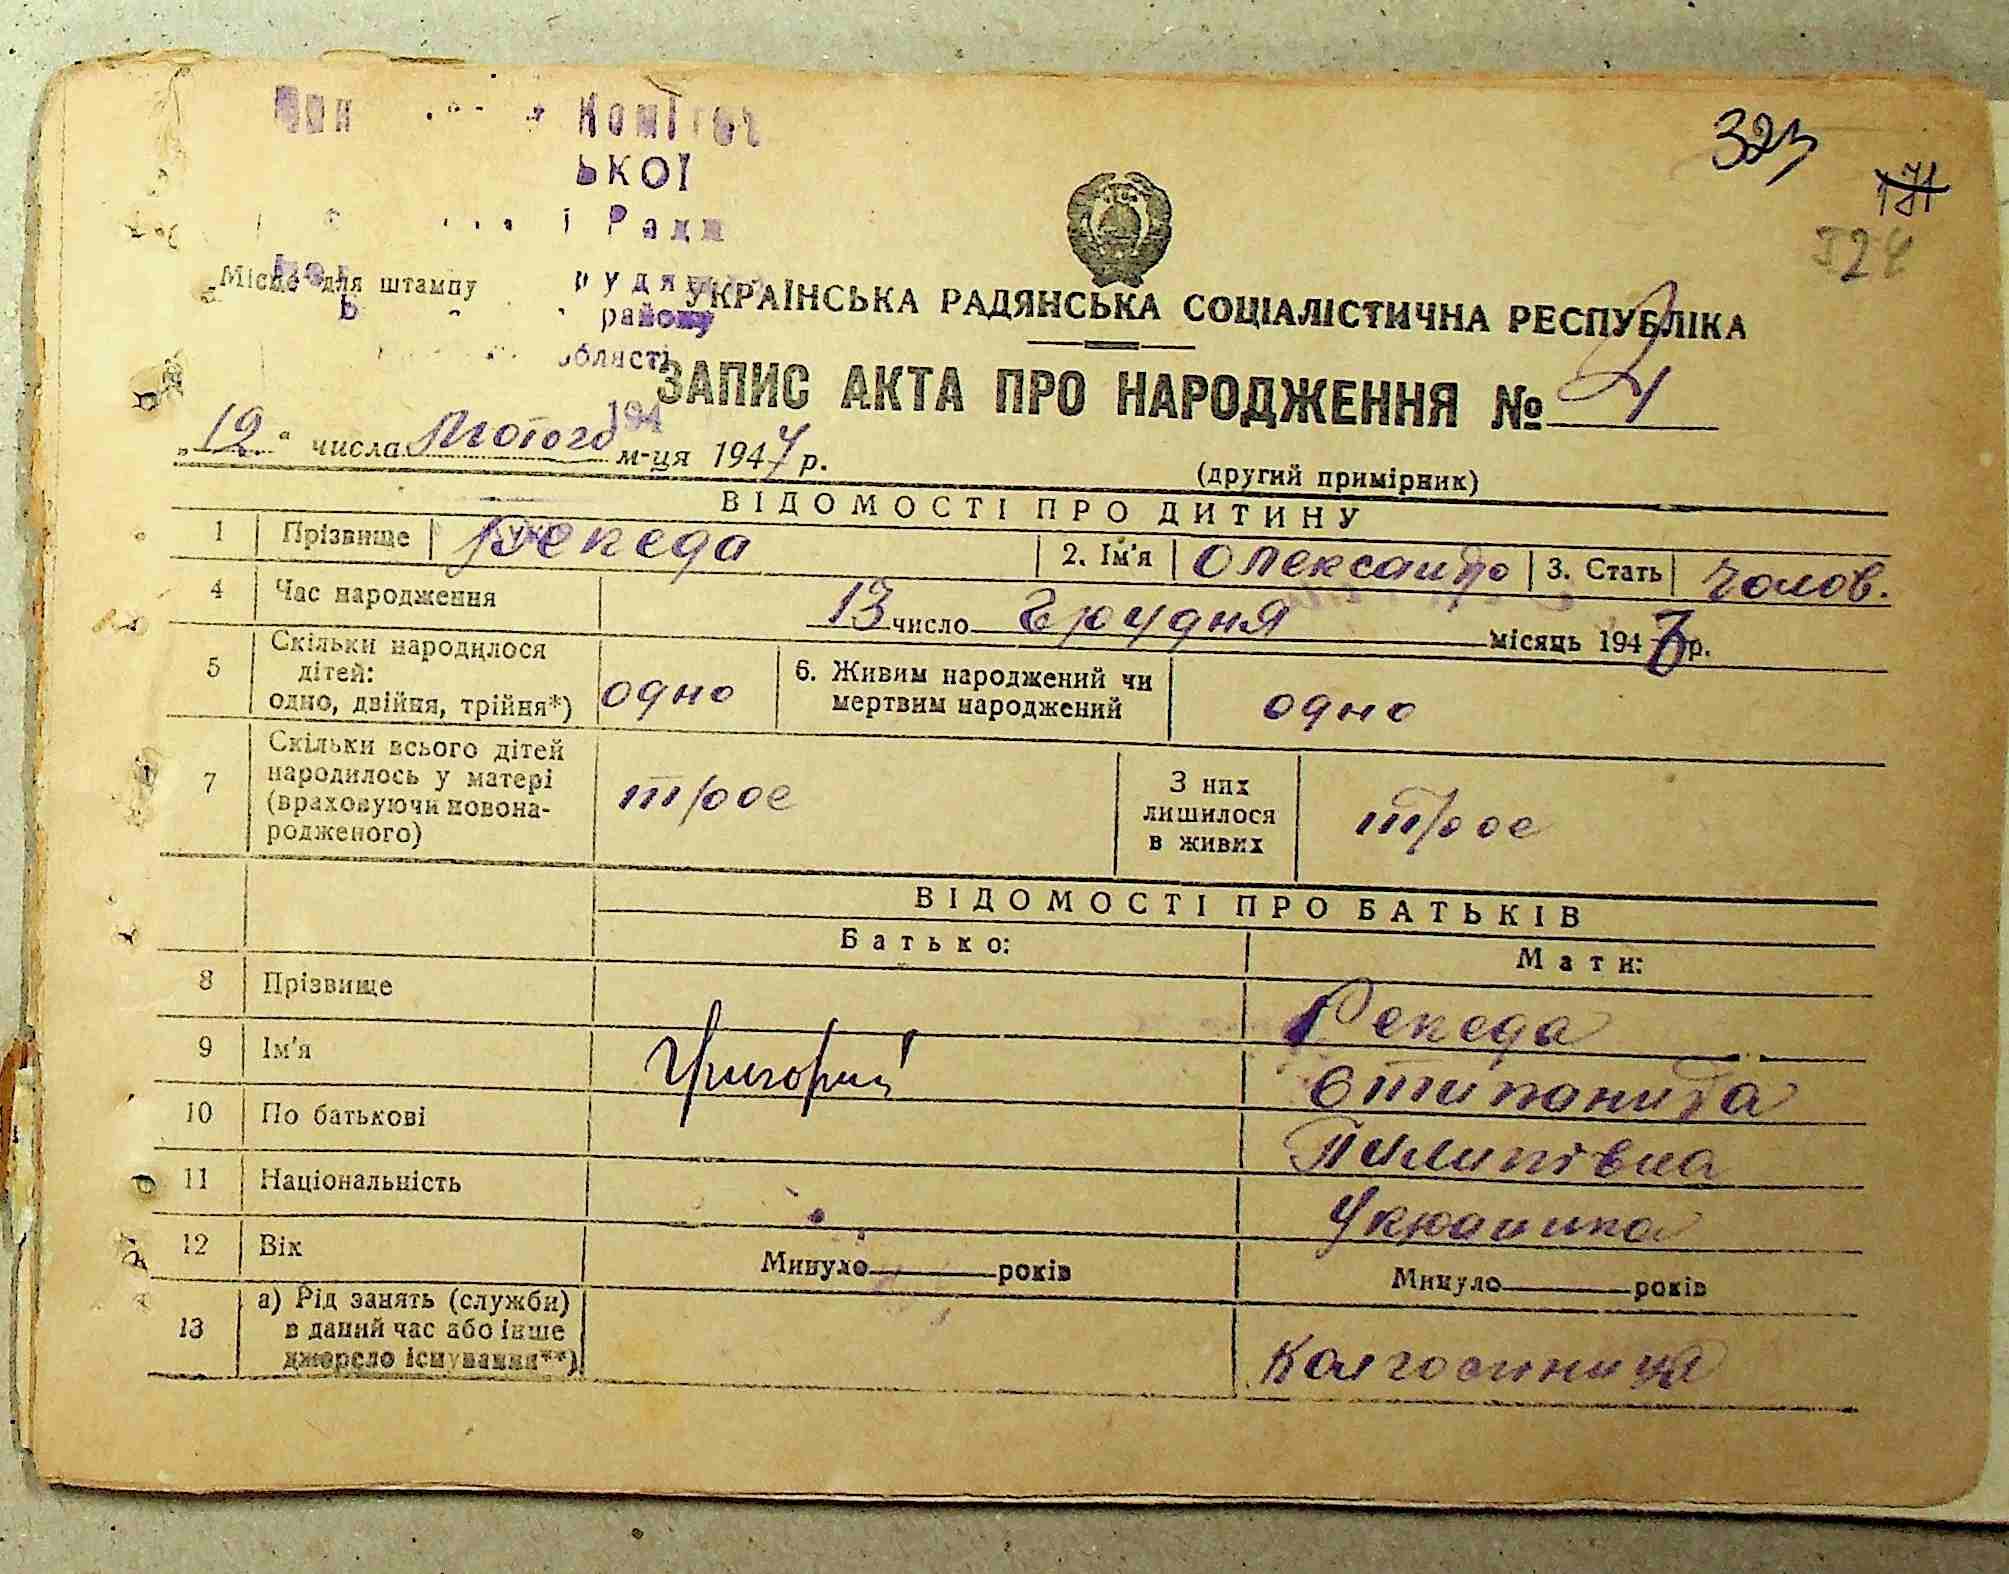 Комітет
ької
Ради
323
171
Місце для штампу
району
області
194
УКРАЇНСЬКА РАДЯНСЬКА СОЦІАЛІСТИЧНА РЕСПУБЛІКА
ЗАПИС АКТА ПРО НАРОДЖЕННЯ №
„12“ числа Лютого м-ця 1947 р.
(другий примірник)
ВІДОМОСТІ ПРО ДИТИНУ
1 Прізвище Репеда 2. Ім'я Олександр 3. Стать Чолов.
4 Час народження 13 число Грудня місяць 1946 р.
5 Скільки народилося дітей: одно, двійня, трійня*) одно 6. Живим народжений чи мертвим народжений одно
7 Скільки всього дітей народилось у матері (враховуючи новонародженого) троє З них лишилося в живих троє
ВІДОМОСТІ ПРО БАТЬКІВ
Батько: Мати:
8 Прізвище Репеда
9 Ім'я Григорий Стипанида
10 По батькові Пилипівна
11 Національність Украинка
12 Вік Минуло років Минуло років
13 а) Рід занять (служби) в даний час або інше джерело існування**) Колгоспниця